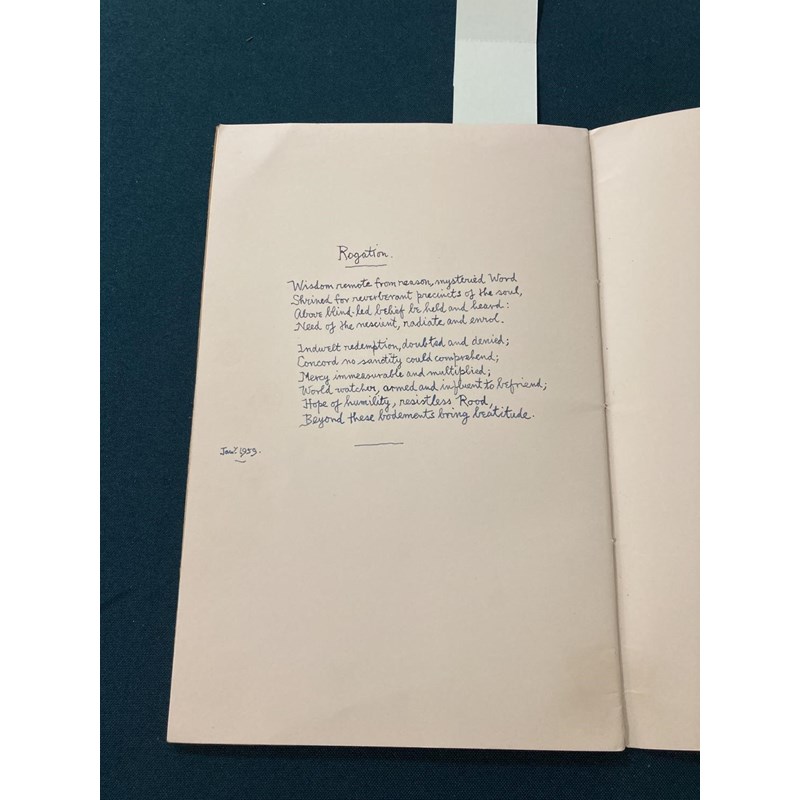 Rogation.
Wisdom remote from reason, mysteried Word
Shrined for reverberant precincts of the soul,
Above blind-led belief be held and heard:
Need of the nescient, radiate and enrol.
Indwelt redemption, doubted and denied;
Concord no sanctity could comprehend;
Mercy immeasurable and multiplied;
World watcher, armed and influent to befriend;
Hope of humility, resistless Rood,
Beyond these bodements bring beatitude.
Jany. 1953.